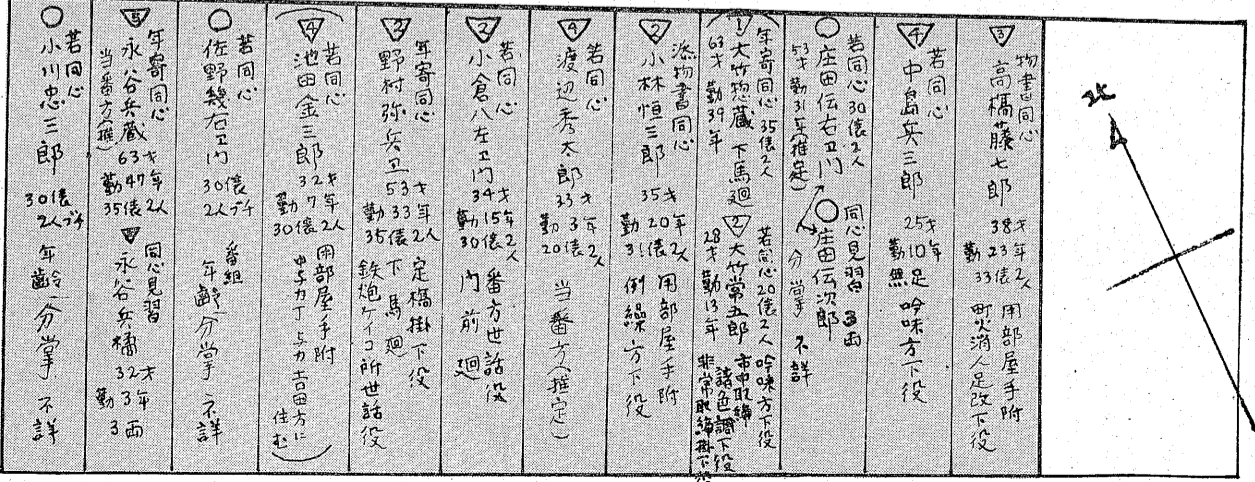 北
③
物書同心
高橋藤七郎
38才
勤23年
33俵2人
用部屋手附
町火消人足改下役
④
若同心
中島英三郎
25才
勤10年
無足
吟味方下役
○
若同心 30俵2人
庄田伝右卫门
53才 勤31年(推定)
○
同心見習 3両
庄田伝次郎
分掌 不詳
①
年寄同心 35俵2人
大竹惣蔵 下馬廻
63才 勤39年
②
若同心 20俵2人
大竹常五郎
28才 勤13年
吟味方下役
市中取締
諸色調下役
非常取締掛下役
②
添物書同心
小林恒三郎
35才
勤20年
31俵2人
用部屋手附
例繰方下役
④
若同心
渡辺秀太郎
33才
勤3年
20俵2人
当番方(推定)
②
若同心
小倉八左卫门
34才
勤15年
30俵2人
番方世話役
門前廻
③
年寄同心
野村弥兵卫
53才
勤33年
35俵2人
定橋掛下役
下馬廻
鉄炮ケイコ所世話役
④
若同心
池田金三郎
32才
勤7年
30俵2人
用部屋手附
与力吉田方に住む
○
若同心
佐野幾右卫门
30俵
2人ブチ
番組
年齢分掌 不詳
⑤
年寄同心
永谷兵蔵
当番方(推)
63才
勤47年
35俵2人
同心見習
永谷兵橘
32才
勤3年
3両
○
若同心
小川忠三郎
30俵
2人ブチ
年齢分掌 不詳